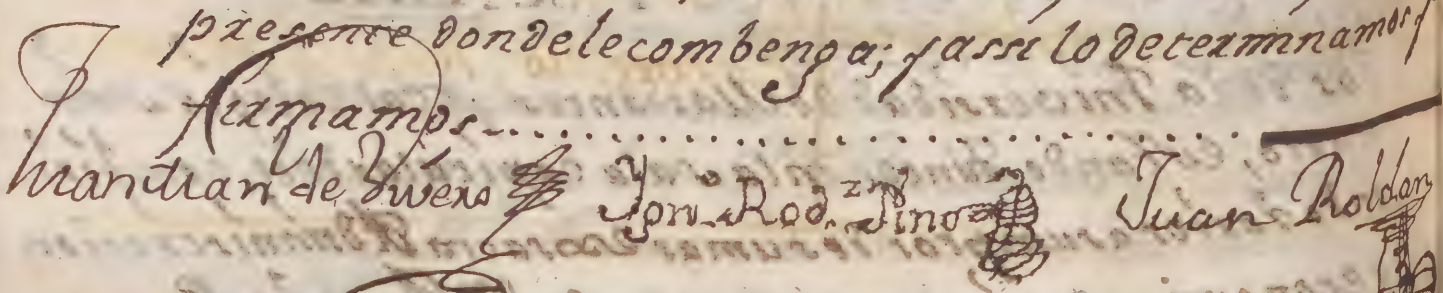 presente donde le combenga; y assi lo determinamos y
firmamos
de Rivero Ygn.º Rod.ᶻ Pino Juan Roldan